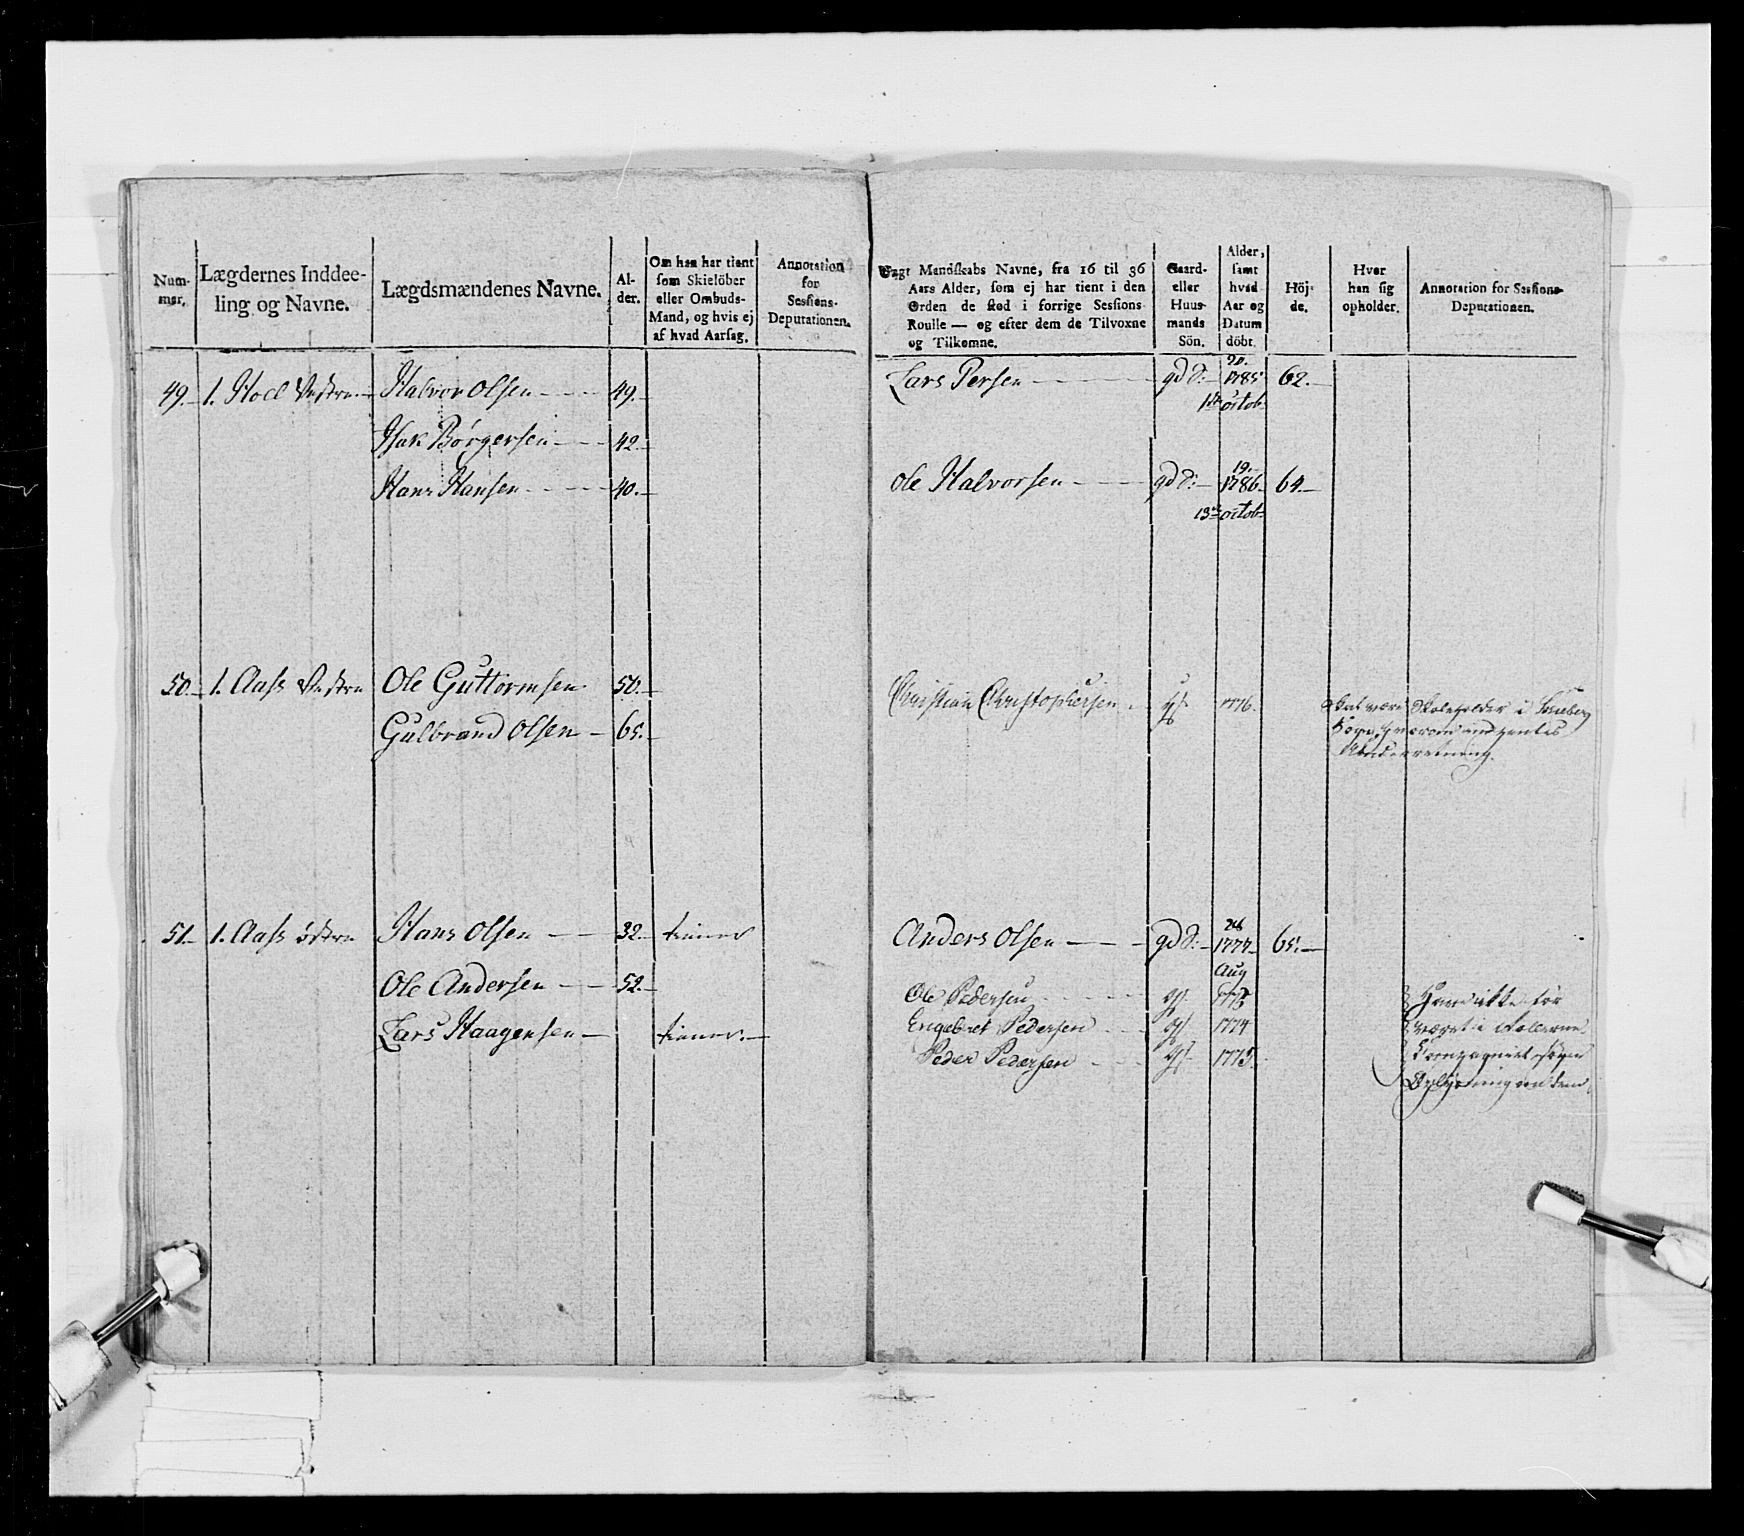 Nummer.
Lægdernes Inddeeling og Navne.
Lægdsmændenes Navne.
Alder.
Om han har tient
som Skielöber
eller Ombuds-
Mand, og hvis ej
af hvad Aarsag.
Annotation
for
Sessions-
Deputationen.
49. 1. Hoel Vestre Halvor Olsen 49.
Isak Børgersen 42.
Hans Hansen 40.
50. 1. Aass Vestre Ole Guttormsen 50.
Gulbrand Olsen 65.
51. 1. Aass østre Hans Olsen 32. tiener
Ole Andersen 52.
Lars Haagensen tiener.
Ungt Mandskabs Navne, fra 16 til 36
Aars Alder, som ej har tient i den
Orden de stod i forrige Sessions
Roulle — og efter dem de Tilvoxne
og Tilkomne.
Gaard-
eller
Huus-
mands
Sön.
Alder,
samt
hvad
Aar og
Datum
döbt.
Höjde.
Hvor
han sig
opholder.
Annotation for Sessions-
Deputationen.
20.
Lars Persen gd S: 1785 62.
1de octob
19.
Ole Halvorsen gd S: 1786 64.
13de octob
Christian Christophersen 1776. Skal være Skoleholder i
Underretning.
26
Anders Olsen gd S: 1777 65.
Aug
Ole Pedersen 1773 ikke før
Engebret Pedersen 1774 været i Rollerne.
Peder Pedersen 1775 Compagniet
Oplysning om dem.